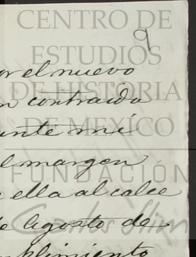 CENTRO DE
ESTUDIOS
DE HISTORIA
DE MEXICO
FUNDACIÓN
Carlos Slim
9
or el nuevo
n contraida
ante mi
l margen
ella al calce
de Agosto de
plimiento